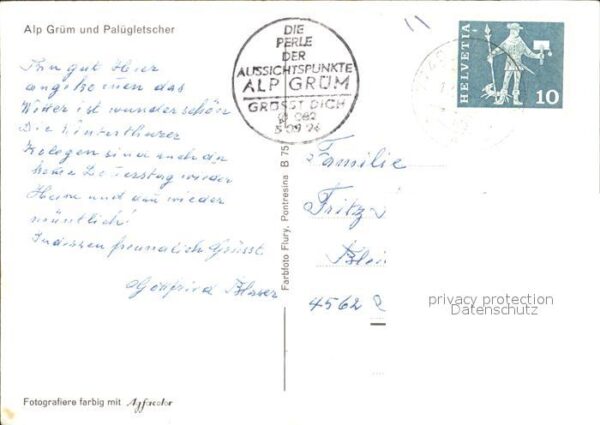 Alp Grüm und Palügletscher
Bin gut Hier
angekommen das
Wetter ist wunderschön
Die Winterthurer
Kolegen sind auch da
komme Donnerstag wieder
Heim und dan wieder
mündtlich!
Indessen freundlich Grüsst
Gottfried Blaser
DIE
PERLE
DER
AUSSICHTSPUNKTE
ALP GRÜM
GRÜSST DICH
HELVETIA
10
Familie
Fritz
Blei
4562
Farbfoto Flury, Pontresina B 75
privacy protection
Datenschutz
Fotografiere farbig mit Agfacolor